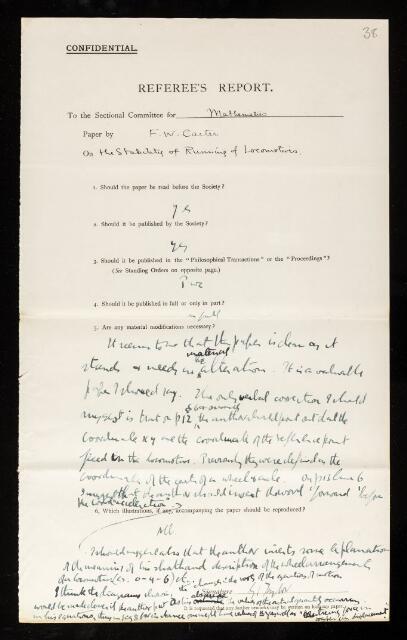 38
CONFIDENTIAL.
REFEREE'S REPORT.
To the Sectional Committee for Mathematics
Paper by F. W. Carter
On the Stability of Running of Locomotives.
1. Should the paper be read before the Society?
yes
2. Should it be published by the Society?
yes
3. Should it be published in the "Philosophical Transactions" or the "Proceedings"?
(See Standing Orders on opposite page.)
Proc
4. Should it be published in full or only in part?
in full
5. Are any material modifications necessary?
It seems to me that the paper is clear as it
material
stands & needs no alteration. It is a valuable
paper I should say. The only verbal correction I should
suggest is that on p 12 the author should point out that the
coordinates x y are the coordinates of the reference point
fixed in the locomotive. Previously they were defined as the
coordinates of the centre of a wheel &
axle. On p 13 line 6
I suggest that the author should insert the word "forward"
the word
6. Which illustrations, if any, accompanying the paper should be reproduced?
All.
I should suggest also that the author inserts some explanation
of the meaning of his shorthand description of the wheel arrangements
of locomotives (i.e. 0-4-6) etc.
I think the diagrams showing the
G. I. Taylor
would be made clearer if the author put
It is requested that any further remarks may be written on foolscap paper.
in his equations,